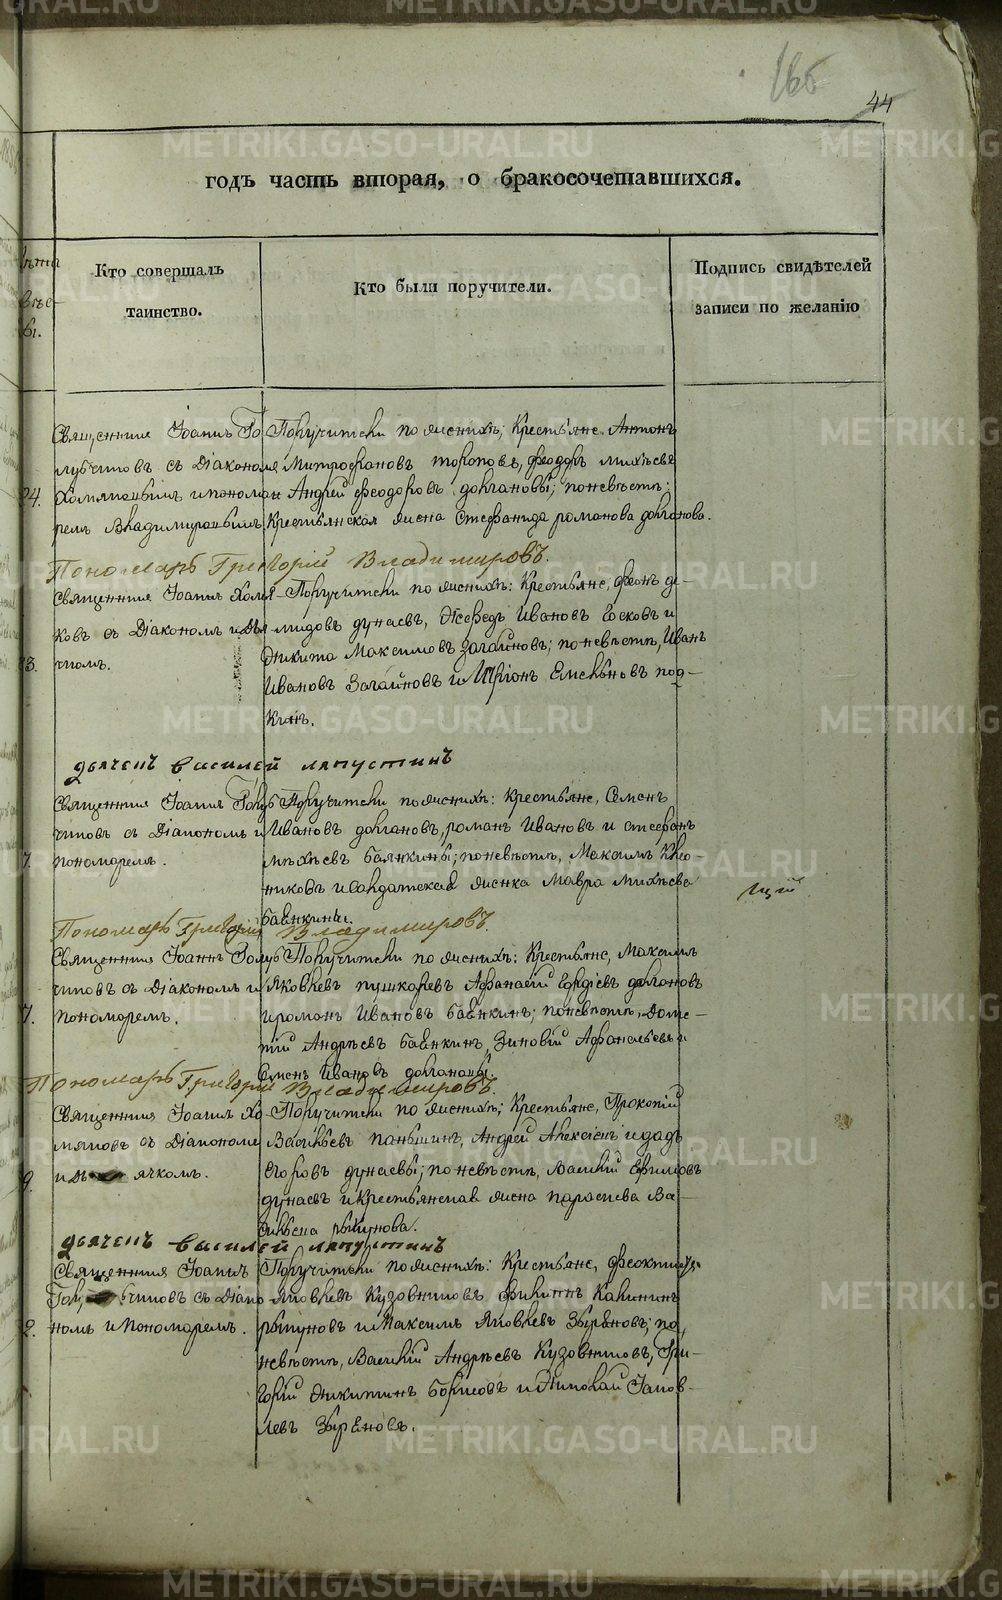 165
44
годъ часть вторая, о бракосочетавшихся.
Кто совершалъ таинство.
Кто были поручители.
Подпись свидѣтелей записи по желанію
Священник Іоаннъ Го-
лубчиковъ съ Діакономъ
и пономаремъ Владимировымъ
24.
Поручители по женихѣ; Крестьяне Антонъ
Митрофановъ топоповъ, феодоръ михѣевъ
и Андрей феодоровъ долгановы; по невѣстѣ:
Крестьянская жена Стефанида романова долганова.
Пономарь Григорій Владимировъ.
Священник Іоаннъ Хомя-
ковъ съ Діакономъ и Дья-
чкомъ.
Поручители по женихѣ: Крестьяне, феонъ де-
мидовъ дунаевъ, Ивановъ и
Никита Максимовъ загайновъ; по невѣстѣ, Иванъ
Ивановъ Загайновъ и Емельяновъ под-
кинъ.
дьячекъ василей лапустинъ
Священник Іоаннъ Голуб-
чиковъ съ Діакономъ и
пономаремъ.
Поручители по женихѣ: Крестьяне, Семенъ
Ивановъ долгановъ, романъ Ивановъ и стефанъ
михѣевъ баянкины; по невѣстѣ, Максимъ
никовъ и солдатская женка Мавра михѣева
баянкины.
Пономарь Григорій Владимировъ.
Священник Іоаннъ Голуб-
чиковъ съ Діакономъ и
пономаремъ.
7.
Поручители по женихѣ: Крестьяне, Максимъ
Яковлевъ пушкаревъ Афанасій долгановъ
и романъ Ивановъ баянкинъ; по невѣстѣ, Доме-
тій Андреевъ баянкинъ, Зиновій Афанасьевъ и
Семенъ Ивановъ долгановы.
Пономарь Григорій Владимировъ.
Священник Іоаннъ Хо-
мяковъ съ Діакономъ
и дьячкомъ.
9.
Поручители по женихѣ; Крестьяне, Прокопій
Васильевъ паньшинъ, Андрей Алексѣевъ и
Егоровъ дунаевы; по невѣстѣ, Василій Ефимовъ
дунаевъ и крестьянская жена парасьева Ва-
сильева рычунова.
дьячекъ василей лапустинъ
Священник Іоаннъ
Голубчиковъ съ Діако-
номъ и Пономаремъ.
2.
Поручители по женихѣ: Крестьяне, феоктистъ
Яковлевъ Кузовниковъ филипъ Калининъ
рычуновъ и Максимъ Яковлевъ Зыряновъ; по
невѣстѣ, Василій Андреевъ Кузовниковъ, Гри-
горій Никитинъ борисовъ и Николай Іаков-
левъ Зыряновъ.
METRIKI.GASO-URAL.RU